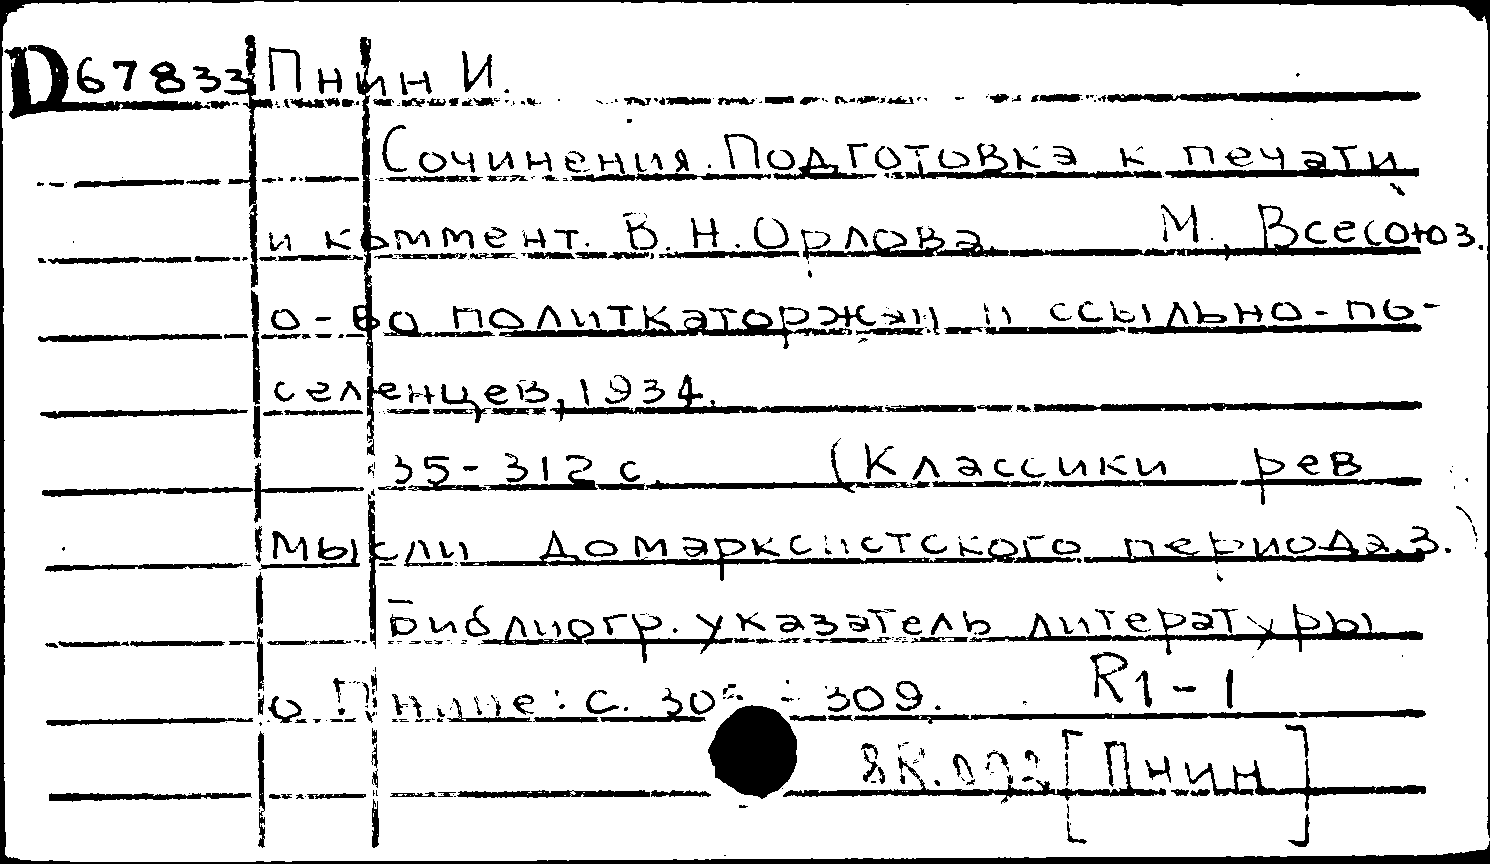 D67833 Пнин И.
Сочинения. Подготовка к печати
и коммент. В.Н.Орлова. М., Всесоюз.
о-во политкаторжан и ссыльно-по-
селенцев, 1934.
35-312 с. (Классики рев
мысли домарксистского периода.3.)
Библиогр. указатель литературы
о Пнине: с. 305 - 309. R1-1
8R.092 [Пнин]